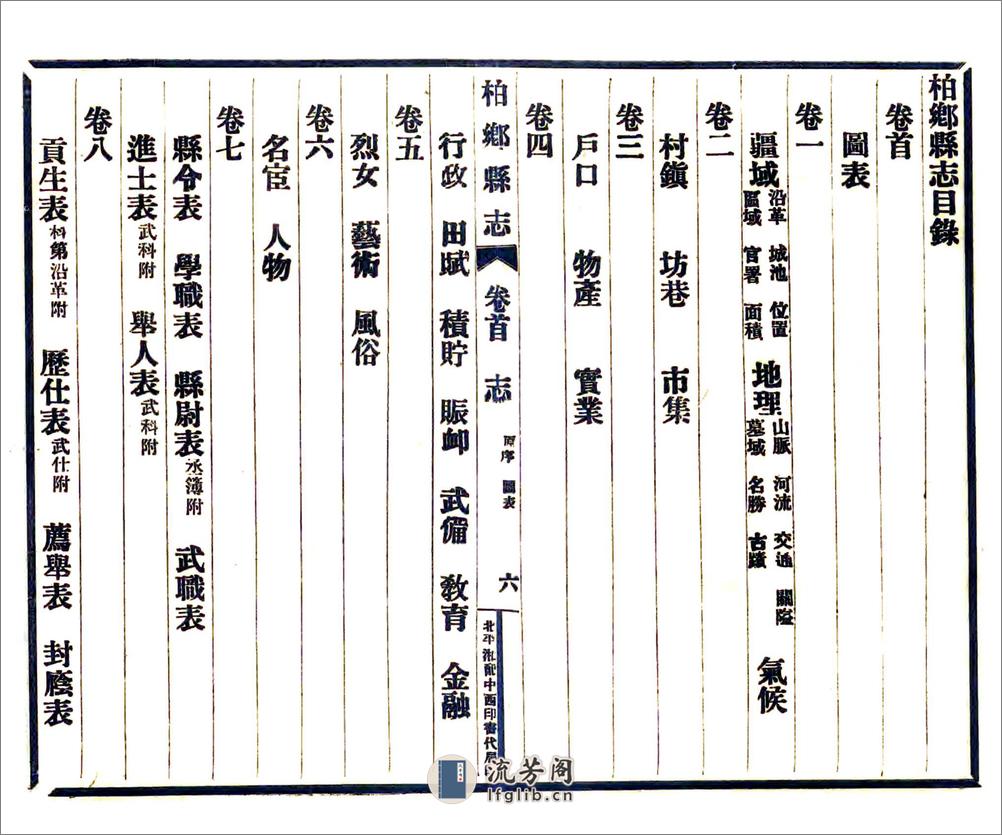 柏鄉縣志目錄
卷首
圖表
卷一
疆域 沿革 城池 位置 區域 官署 面積 地理 山脈 河流 交通 關隘 墓域 名勝 古蹟 氣候
卷二
村鎭 坊巷 市集
卷三
戶口 物產 實業
卷四
柏鄉縣志 卷首 志 序 圖表 六
北平 中西印書代
行政 田賦 積貯 賑卹 武備 敎育 金融
卷五
烈女 藝術 風俗
卷六
名宦 人物
卷七
縣令表 學職表 縣尉表 丞簿附 武職表
進士表 武科附 舉人表 武科附
卷八
貢生表 科第沿革附 歷仕表 武仕附 薦舉表 封廕表
流芳阁
lfglib.cn